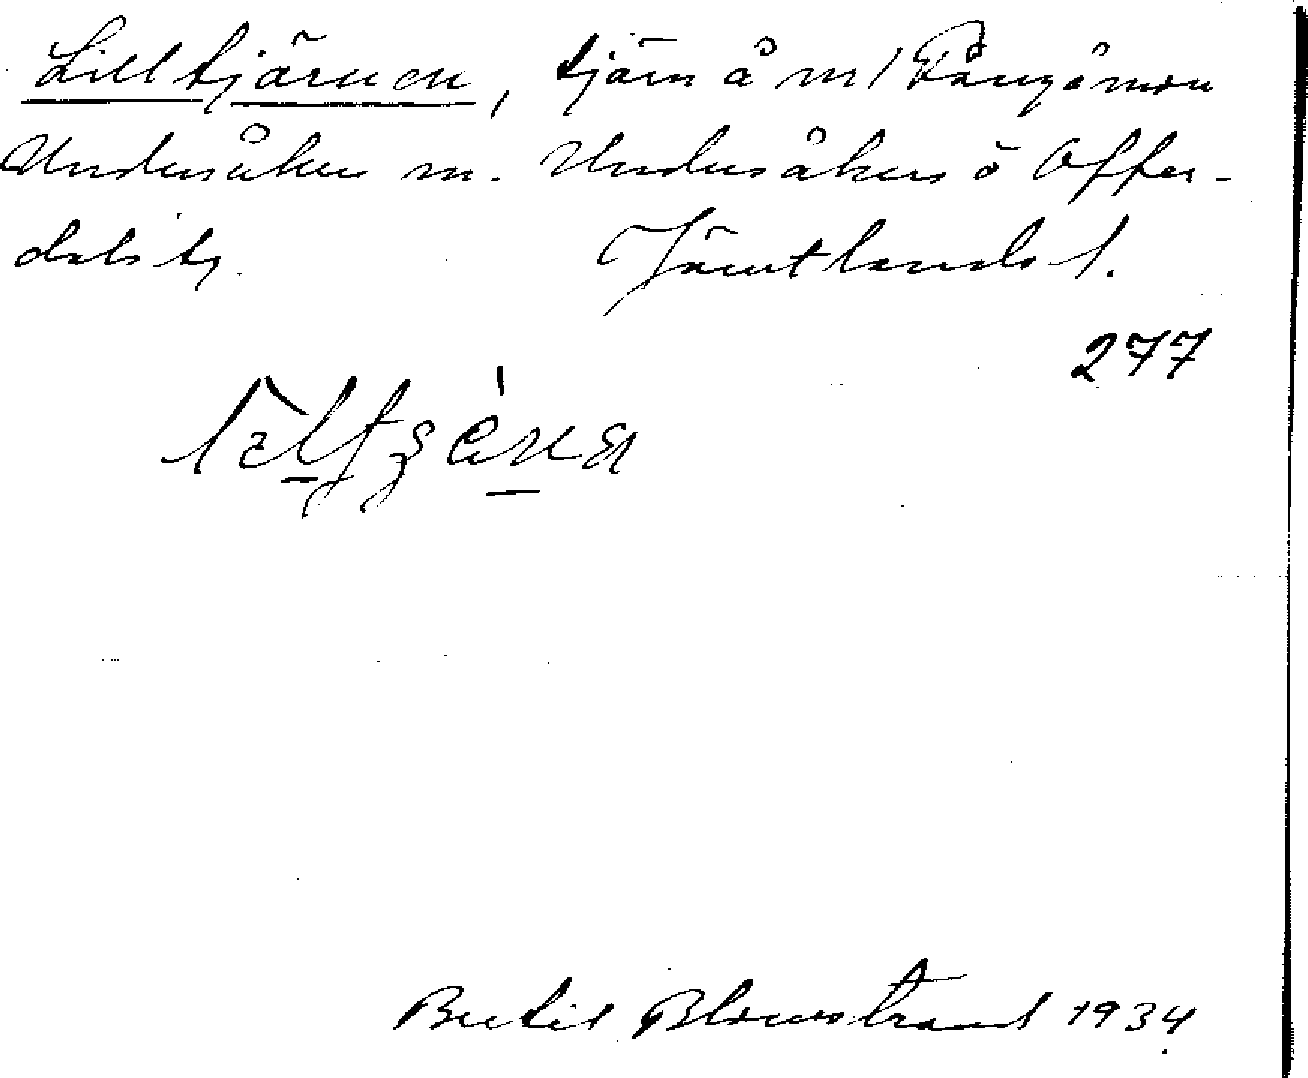 Lilltjärnen, tjärn å m/ Rångåmon
Undersåkers sn. Undersåkers o Offer-
dals tg. Jämtlands l.
277
Bertil Blomstrand 1934